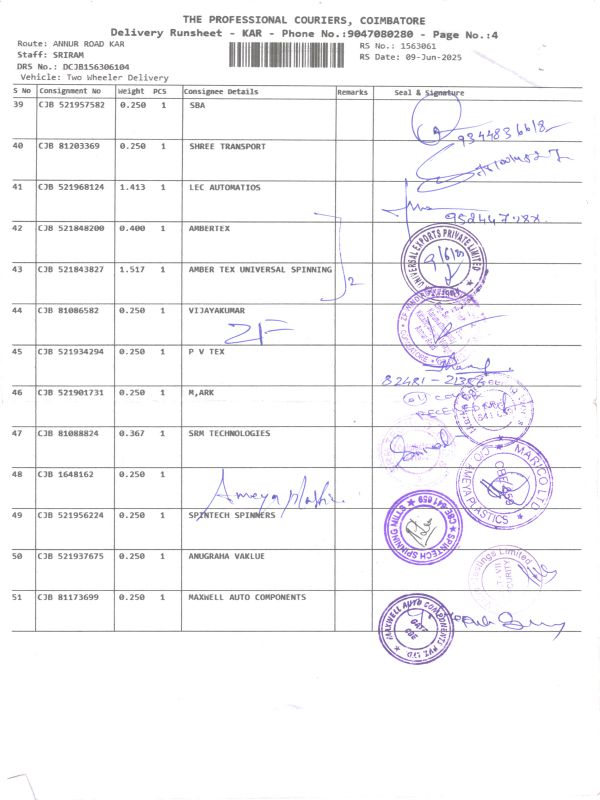 THE PROFESSIONAL COURIERS, COIMBATORE
Delivery Runsheet - KAR - Phone No.:9047080280 - Page No.:4
Route: ANNUR ROAD KAR
RS No.: 1563061
Staff: SRIRAM
RS Date: 09-Jun-2025
DRS No.: DCJB156306104
Vehicle: Two Wheeler Delivery
S No Consignment No Weight PCS Consignee Details Remarks Seal & Signature
39 CJB 521957582 0.250 1 SBA
9344836618
40 CJB 81203369 0.250 1 SHREE TRANSPORT
41 CJB 521968124 1.413 1 LEC AUTOMATIOS
42 CJB 521848200 0.400 1 AMBERTEX
UNIVERSAL EXPORTS PRIVATE LIMITED
43 CJB 521843827 1.517 1 AMBER TEX UNIVERSAL SPINNING
2
44 CJB 81086582 0.250 1 VIJAYAKUMAR
ZF
45 CJB 521934294 0.250 1 P V TEX
46 CJB 521901731 0.250 1 M,ARK
47 CJB 81088824 0.367 1 SRM TECHNOLOGIES
MARICO LTD
C/O AMEYA PLASTICS
48 CJB 1648162 0.250 1
Ameya plastic
49 CJB 521956224 0.250 1 SPINTECH SPINNERS
SPINTECH SPINNING MILLS
CBE-641 659
50 CJB 521937675 0.250 1 ANUGRAHA VAKLUE
51 CJB 81173699 0.250 1 MAXWELL AUTO COMPONENTS
MAXWELL AUTO COMPONENTS PVT LTD